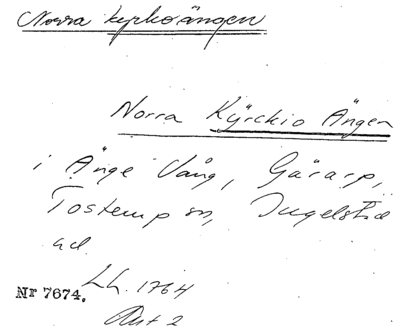 Norra kyrkoängen
Norra Kÿrckio Ängen
i Änge Vång, Gärarp,
Tostemp sn, Ingelstad
hd.
Lh. 1764
Nr 7674.
Akt 2